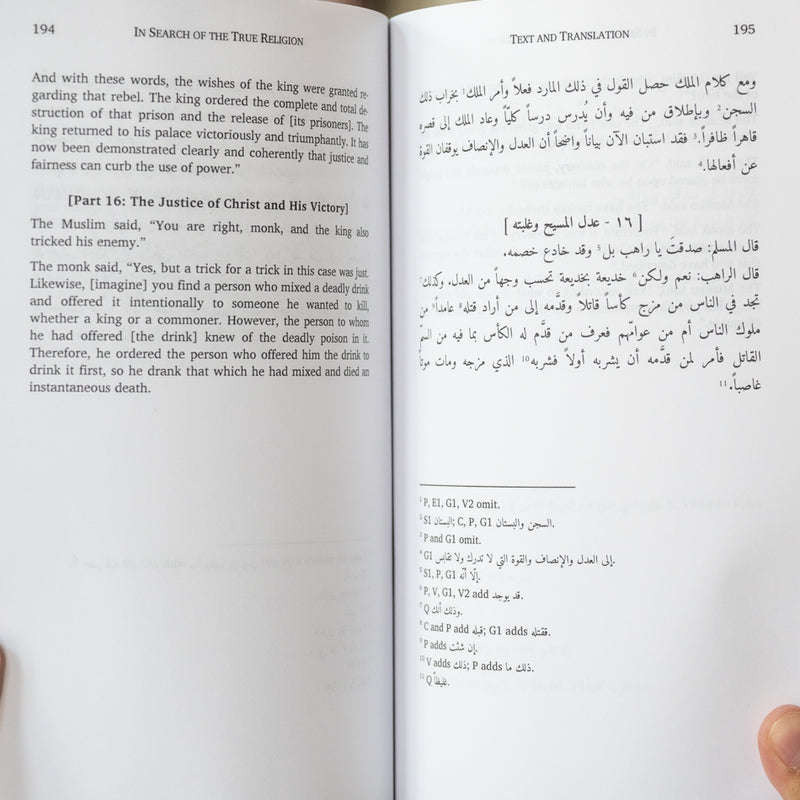 194
IN SEARCH OF THE TRUE RELIGION
And with these words, the wishes of the king were granted re-
garding that rebel. The king ordered the complete and total de-
struction of that prison and the release of [its prisoners]. The
king returned to his palace victoriously and triumphantly. It has
now been demonstrated clearly and coherently that justice and
fairness can curb the use of power.”
[Part 16: The Justice of Christ and His Victory]
The Muslim said, “You are right, monk, and the king also
tricked his enemy.”
The monk said, “Yes, but a trick for a trick in this case was just.
Likewise, [imagine] you find a person who mixed a deadly drink
and offered it intentionally to someone he wanted to kill,
whether a king or a commoner. However, the person to whom
he had offered [the drink] knew of the deadly poison in it.
Therefore, he ordered the person who offered him the drink to
drink it first, so he drank that which he had mixed and died an
instantaneous death.
TEXT AND TRANSLATION
195
ومع كلام الملك حصل القول في ذلك المارد فعلاً وأمر الملك¹ بخراب ذلك
السجن² وبإطلاق من فيه وأن يُدرس درساً كليّاً وعاد الملك إلى قصره
قاهراً ظافراً.³ فقد استبان الآن بياناً واضحاً أن العدل والإنصاف يوقفان القوة
عن أفعالها.⁴
[ ١٦ - عدل المسيح وغلبته ]
قال المسلم: صدقتَ يا راهب بل⁵ وقد خادع خصمه.
قال الراهب: نعم ولكن⁶ خديعة بخديعة تحسب وجهاً من العدل. وكذلك⁷
تجد في الناس من مزج كأساً قاتلاً وقدَّمه إلى من أراد قتله⁸ عامداً⁹ من
ملوك الناس أم من عوامّهم فعرف من قدَّم له الكأس بما فيه من السمّ
القاتل فأمر لمن قدَّمه أن يشربه أولاً فشربه¹⁰ الذي مزجه ومات موتاً
غاصباً.¹¹
¹ P, E1, G1, V2 omit.
² S1 البستان; C, P, G1 السجن والبستان.
³ P and G1 omit.
⁴ G1 إلى العدل والإنصاف والقوة التي لا تدرك ولا تقابس.
⁵ S1, P, G1 إلّا أنّه.
⁶ P, V, G1, V2 add قد يوجد.
⁷ Q وذلك أنك.
⁸ C and P add قبله; G1 adds فقتله.
⁹ P adds إن شئت.
¹⁰ V adds ذلك; P adds ذلك ما.
¹¹ Q غليظاً.